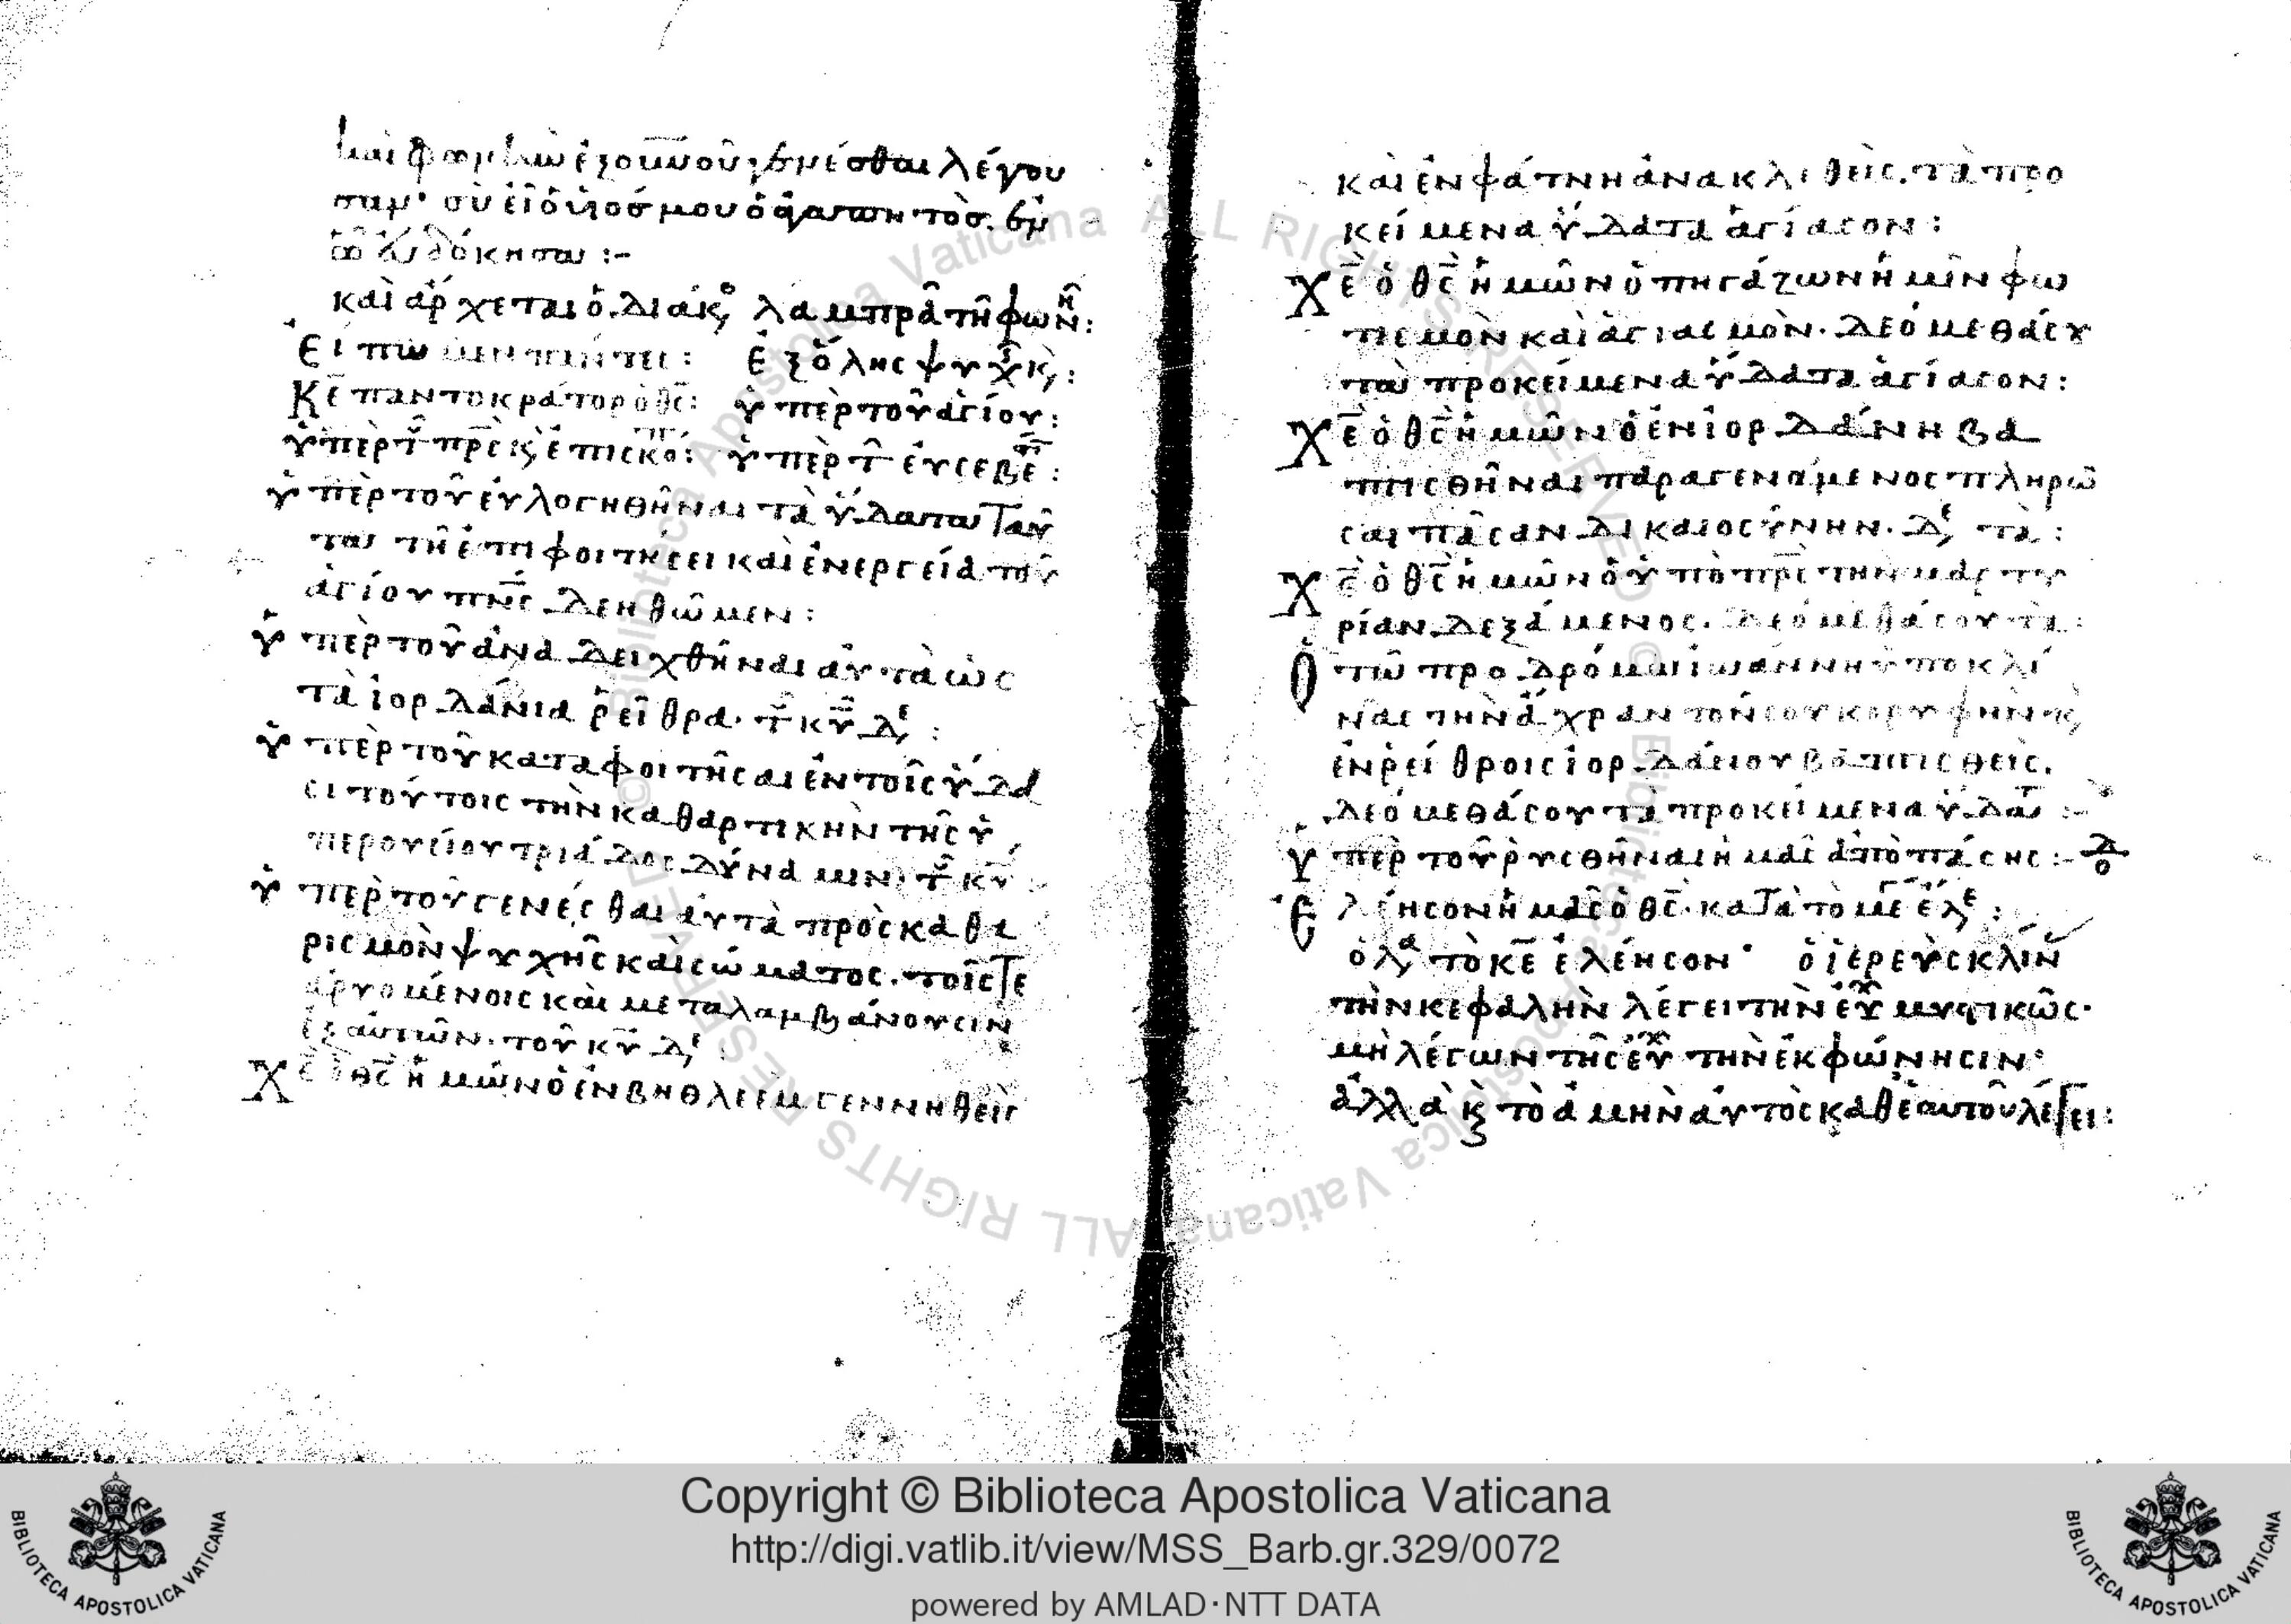 καὶ φωνὴν ἐξ οὐνοῦ γενέσθαι λέγου
σαν· σὺ εἶ ὁ υἱός μου ὁ ἀγαπητὸς. ἐν
ᾧ εὐδόκησα :-
καὶ ἄρχεται ὁ διάκ λαμπρᾶ τῆ φωνῆ :
Εἴπωμεν πάντες : ἐξ ὅλης ψυχ κ, :
Κε παντοκράτορ ὁ θς : ὑπὲρ τοῦ ἁγίου :
ὑπὲρ τ πρς κ, ἐπισκό : ὑπὲρ τ εὐσεβε :
ὑπὲρ τοῦ εὐλογηθῆναι τὰ ὕδατα ταῦ
τα τῆ ἐπιφοιτήσει καὶ ἐνεργεία τοῦ
ἁγίου πνς δεηθῶμεν :
ὑπὲρ τοῦ ἀναδειχθῆναι αὐτὰ ὡς
τὰ ἰορδάνια ῥεῖθρα· τ κυ δε :
ὑπὲρ τοῦ καταφοιτῆσαι ἐν τοῖς ὕδα
σι τούτοις τὴν καθαρτικὴν τῆς ὑ
περουσίου τριάδος δύναμιν· τ κυ
ὑπὲρ τοῦ γενέσθαι αὐτὰ πρὸς καθα
ρισμὸν ψυχῆς καὶ σώματος. τοῖς τε
ἀρυομένοις καὶ μεταλαμβάνουσιν
ἐξ αὐτῶν. τοῦ κυ δε :
Χε ὁ θς ἡμῶν ὁ ἐν βηθλεὲμ γεννηθεὶς
καὶ ἐν φάτνη ἀνακλιθεὶς. τὰ προ
κείμενα ὕδατα ἁγίασον :
Χε ὁ θς ἡμῶν ὁ πηγάζων ἡμῖν φω
τισμὸν καὶ ἁγιασμὸν. δεόμεθά σου
τὰ προκείμενα ὕδατα ἁγίασον :
Χε ὁ θς ἡμῶν ὁ ἐν ἰορδάνη βα
πτισθῆναι παραγενάμενος πληρῶ
σαι πᾶσαν δικαιοσύνην. δε τὰ :
Χε ὁ θς ἡμῶν ὁ ὑπὸ πρς τὴν μαρτυ
ρίαν δεξάμενος. δεόμεθά σου τὰ :
Ὁ τῶ προδρόμω ἰωάννη ὑποκλί
νας τὴν ἄχραντόν σου κορυφὴν κ,
ἐν ῥείθροις ἰορδάνου βαπτισθεὶς.
δεόμεθά σου τὰ προκείμενα ὕδατ :-
ὑπὲρ τοῦ ῥυσθῆναι ἡμᾶς ἀπὸ πάσης :-
Ἐλέησον ἡμᾶς ὁ θς· κατὰ τὸ με ἔλε :
ὁ λα τὸ κε ἐλέησον· ὁ ἱερεὺς κλίν
τὴν κεφαλὴν λέγει τὴν εὐχ μυστικῶς·
μὴ λέγων τῆς εὐχ τὴν ἐκφώνησιν·
ἀλλὰ κ, τὸ ἀμὴν αὐτὸς καθ ἑαυτοῦ λέγει :
Copyright © Biblioteca Apostolica Vaticana
http://digi.vatlib.it/view/MSS_Barb.gr.329/0072
powered by AMLAD·NTT DATA
BIBLIOTECA APOSTOLICA VATICANA
BIBLIOTECA APOSTOLICA VATICANA
© Biblioteca Apostolica Vaticana ALL RIGHTS RESERVED © Biblioteca Apostolica Vaticana ALL RIGHTS RESERVED